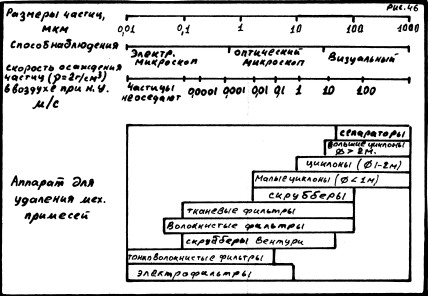 рис.46
Размеры частиц, мкм
0,01 0,1 1 10 100 1000
Способ наблюдения
Электр. микроскоп
оптический микроскоп
Визуальный
скорость осаждения частиц (ρ=2г/см³) в воздухе при н.у. м/с
Частицы неоседают
0,0001 0,001 0,01 0,1 1 10 100
Аппарат для удаления мех. примесей
сепараторы
большие циклоны ф > 2 м.
циклоны (ф 1-2м)
Малые циклоны (ф <1м)
скрубберы
тканевые фильтры
Волокнистые фильтры
скрубберы Вентури
тонковолокнистые фильтры
электрофильтры